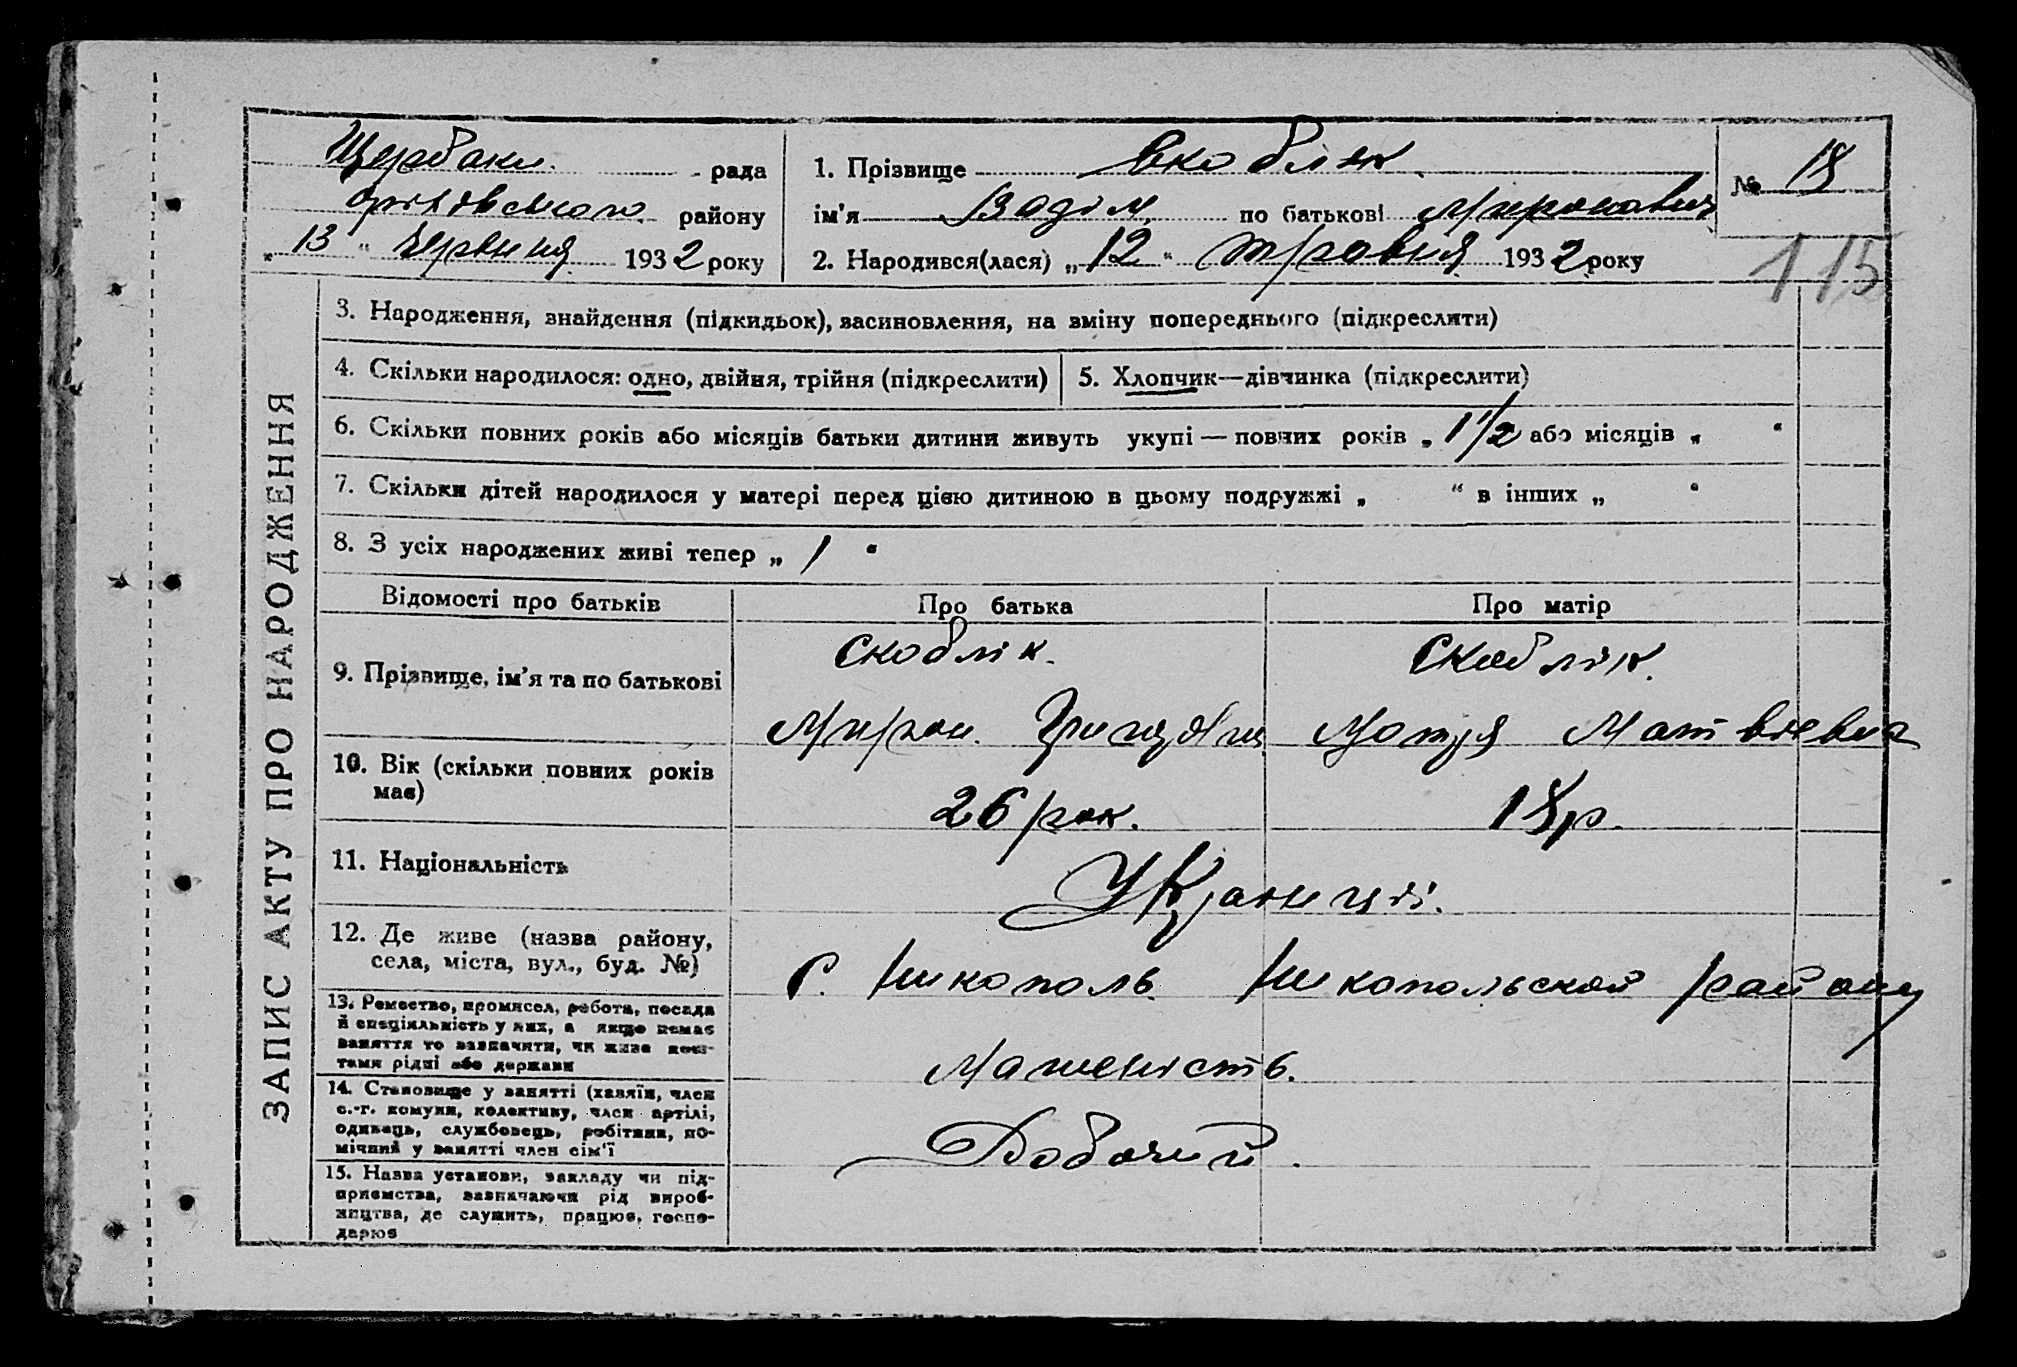 Щербаки рада
Оріхівського району
„ 13 “ червня 1932 року
1. Прізвище Скоблік
ім'я Вадім по батькові Миронович
2. Народився(лася) „ 12 “ травня 1932 року
№ 18
115
ЗАПИС АКТУ ПРО НАРОДЖЕННЯ
3. Народження, знайдення (підкидьок), васиновлення, на зміну попереднього (підкреслити)
4. Скільки народилося: одно, двійня, трійня (підкреслити)
5. Хлопчик—дівчинка (підкреслити)
6. Скільки повних років або місяців батьки дитини живуть укупі — повних років „ 1 1/2 або місяців „ “
7. Скільки дітей народилося у матері перед цією дитиною в цьому подружжі „ “ в інших „ “
8. З усіх народжених живі тепер „ 1 “
Відомості про батьків
Про батька
Про матір
9. Прізвище, ім'я та по батькові
Скоблік.
Скоблік.
Мирон
Мотря Матвієвна
10. Вік (скільки повних років
має)
26 рок.
18 р.
11. Національність
Українці.
12. Де живе (назва району,
села, міста, вул., буд. №)
С. Никополь Никопольской району
13. Ремество, промисел, робота, посада
й спеціяльність у них, а якщо немає
заняття то зазначити, чи живе кош-
тами рідні або держави
Машеніст
14. Становище у занятті (хазяїн, член
с.-г. комуни, колективу, член артілі,
одинець, службовець, робітник, по-
мічний у занятті член сім'ї
Робочий.
15. Назва установи, закладу чи під-
приємства, зазначаючи рід вироб-
ництва, де служить, працює, госпо-
дарює